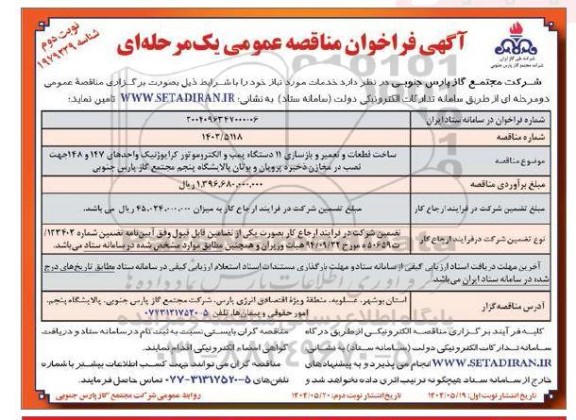 نوبت دوم
شناسه ۱۹۷۹۳۳۹
آگهی فراخوان مناقصه عمومی یک‌مرحله‌ای
شرکت ملی گاز ایران
شرکت مجتمع گاز پارس جنوبی
شرکت مجتمع گاز پارس جنوبی در نظر دارد خدمات مورد نیاز خود را با شرایط ذیل بصورت برگزاری مناقصهٔ عمومی
دومرحله ای از طریق سامانه تدارکات الکترونیکی دولت (سامانه ستاد) به نشانی: WWW.SETADIRAN.IR تامین نماید:
شماره فراخوان در سامانه ستاد ایران
۲۰۰۴۰۹۶۳۴۷۰۰۰۰۰۶
شماره مناقصه
۱۴۰۳/۵۱۱۸
موضوع مناقصه
ساخت قطعات و تعمیر و بازسازی ۱۱ دستگاه پمپ و الکتروموتور کرایوژنیک واحدهای ۱۴۷ و ۱۴۸ جهت
نصب در مخازن ذخیره پروپان و بوتان پالایشگاه پنجم مجتمع گاز پارس جنوبی
مبلغ برآوردی مناقصه
۱,۳۹۶,۶۸۰,۰۰۰,۰۰۰ ریال
مبلغ تضمین شرکت در فرآیند ارجاع کار
مبلغ تضمین شرکت در فرآیند ارجاع کار به میزان ۴۵,۰۲۴,۰۰۰,۰۰۰ ریال می باشد.
نوع تضمین شرکت در فرآیند ارجاع کار
تضمین شرکت در فرآیند ارجاع کار بصورت یکی از تضامین قابل قبول وفق آیین‌نامه تضمین شماره ۱۲۳۴۰۲/
ت۵۰۶۵۹ه مورخ ۹۴/۰۹/۲۲ هیات وزیران و همچنین مطابق موارد مشخص شده در سامانه ستاد می‌باشد.
آخرین مهلت دریافت اسناد ارزیابی کیفی از سامانه ستاد و مهلت بارگذاری مستندات اسناد استعلام ارزیابی کیفی در سامانه ستاد مطابق تاریخ‌های درج
شده در سامانه ستاد ایران می‌باشد.
آدرس مناقصه‌گزار
استان بوشهر، عسلویه، منطقه ویژهٔ اقتصادی انرژی پارس، شرکت مجتمع گاز پارس جنوبی، پالایشگاه پنجم،
امور حقوقی و پیمان‌ها، تلفن ۵-۰۷۷۳۱۳۱۷۵۲۰
کلیه فرآیند برگزاری مناقصه الکترونیکی از طریق درگاه
سامانه تدارکات الکترونیکی دولت (سامانه ستاد) به نشانی
WWW.SETADIRAN.IR انجام می پذیرد و به پیشنهادهای
خارج از سامانه ستاد هیچگونه ترتیب اثری داده نخواهد شد و
مناقصه گران بایستی نسبت به ثبت نام در سامانه ستاد و دریافت
گواهی امضاء الکترونیکی اقدام نمایند.
مناقصه گران می توانند جهت کسب اطلاعات بیشتر با شماره
تلفن‌های ۵-۳۱۳۱۷۵۲۰-۰۷۷ تماس حاصل فرمایند.
تاریخ انتشار نوبت اول: ۱۴۰۴/۰۵/۱۹
تاریخ انتشار نوبت دوم: ۱۴۰۴/۰۵/۲۰
روابط عمومی شرکت مجتمع گاز پارس جنوبی